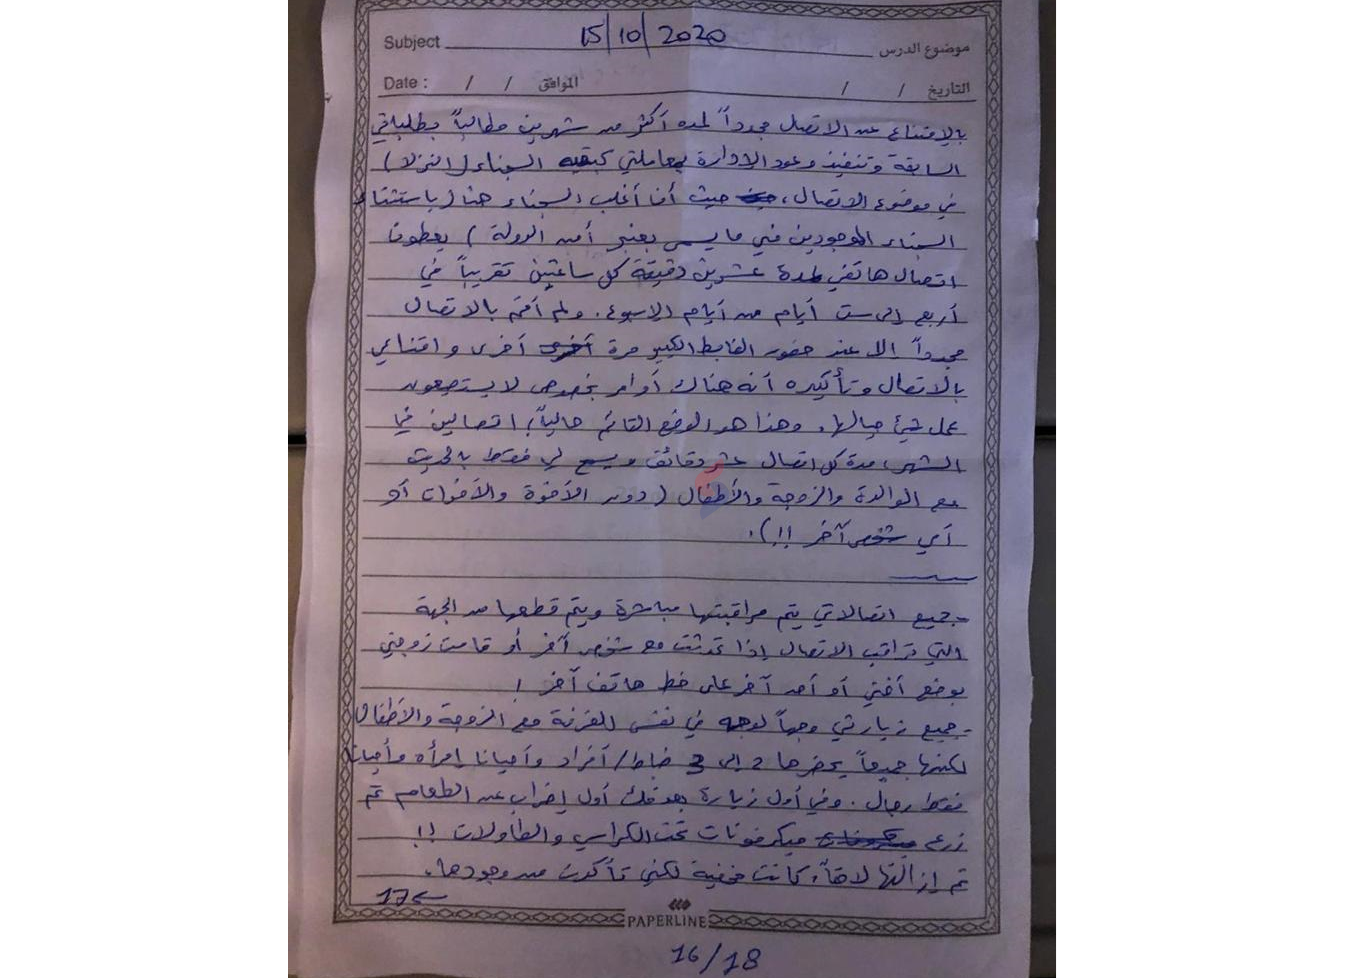 Subject 15/10/2020 موضوع الدرس
Date : / / الموافق / / التاريخ
بالإمتناع عن الاتصال مجدداً لمدة أكثر من شهرين مطالباً بطلباتي
السابقة وتنفيذ وعود الإدارة بمعاملتي كبقية السجناء (النزلاء)
في موضوع الاتصال، حيث أن أغلب السجناء هنا (باستثناء
السجناء الموجودين في ما يسمى بعنبر أمن الدولة) يعطون
اتصال هاتفي لمدة عشرين دقيقة كل ساعتين تقريباً في
أربع إلى ست أيام من أيام الاسبوع. ولم أقم بالاتصال
مجدداً الا عند حضور الضابط الكبير مرة أخرى واقناعي
بالاتصال وتأكيده أنه هناك أوامر بخصوص لا يستطيعون
عمل شيئ حيالها. وهذا هو الوضع القائم حالياً، اتصالين في
الشهر، مدة كل اتصال عشر دقائق ويسمح لي فقط بالحديث
مع الوالدة والزوجة والأطفال (دون الأخوة والأخوات أو
أي شخص آخر !!).
- جميع اتصالاتي يتم مراقبتها مباشرة ويتم قطعها من الجهة
التي تراقب الاتصال إذا تحدثت مع شخص آخر أو قامت زوجتي
بوضع أختي أو أحد آخر على خط هاتف آخر !
- جميع زياراتي وجهاً لوجه في نفس الغرفة مع الزوجة والأطفال
لكنها جميعاً يحضرها 2 إلى 3 ضباط/أفراد وأحيانا إمرأه وأحيانا
فقط رجال. وفي أول زيارة بعد فك أول إضراب عن الطعام تم
زرع ميكرفونات تحت الكراسي والطاولات !!
تم إزالتها لاحقاً، كانت مخفية لكني تأكدت من وجودها.
17←
PAPERLINE
16/18